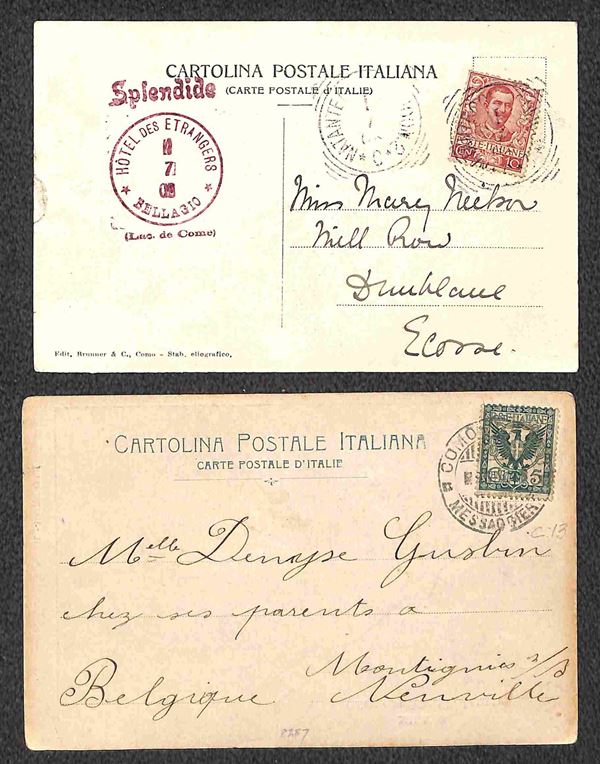 CARTOLINA POSTALE ITALIANA
(CARTE POSTALE d'ITALIE)
Splendide
HÔTEL DES ETRANGERS
7
BELLAGIO
(Lac. de Come)
NATANTE
Miss Mary
Mill Row
Dunblane
Ecosse.
Edit. Brunner & C., Como - Stab. eliografico.
CARTOLINA POSTALE ITALIANA
CARTE POSTALE D'ITALIE
COMO
MESSAGGERI
POSTE ITALIANE
5
C-13
Melle Denyse Gustin
chez ses parents a
Montignies s/S
Belgique Neuville
8287